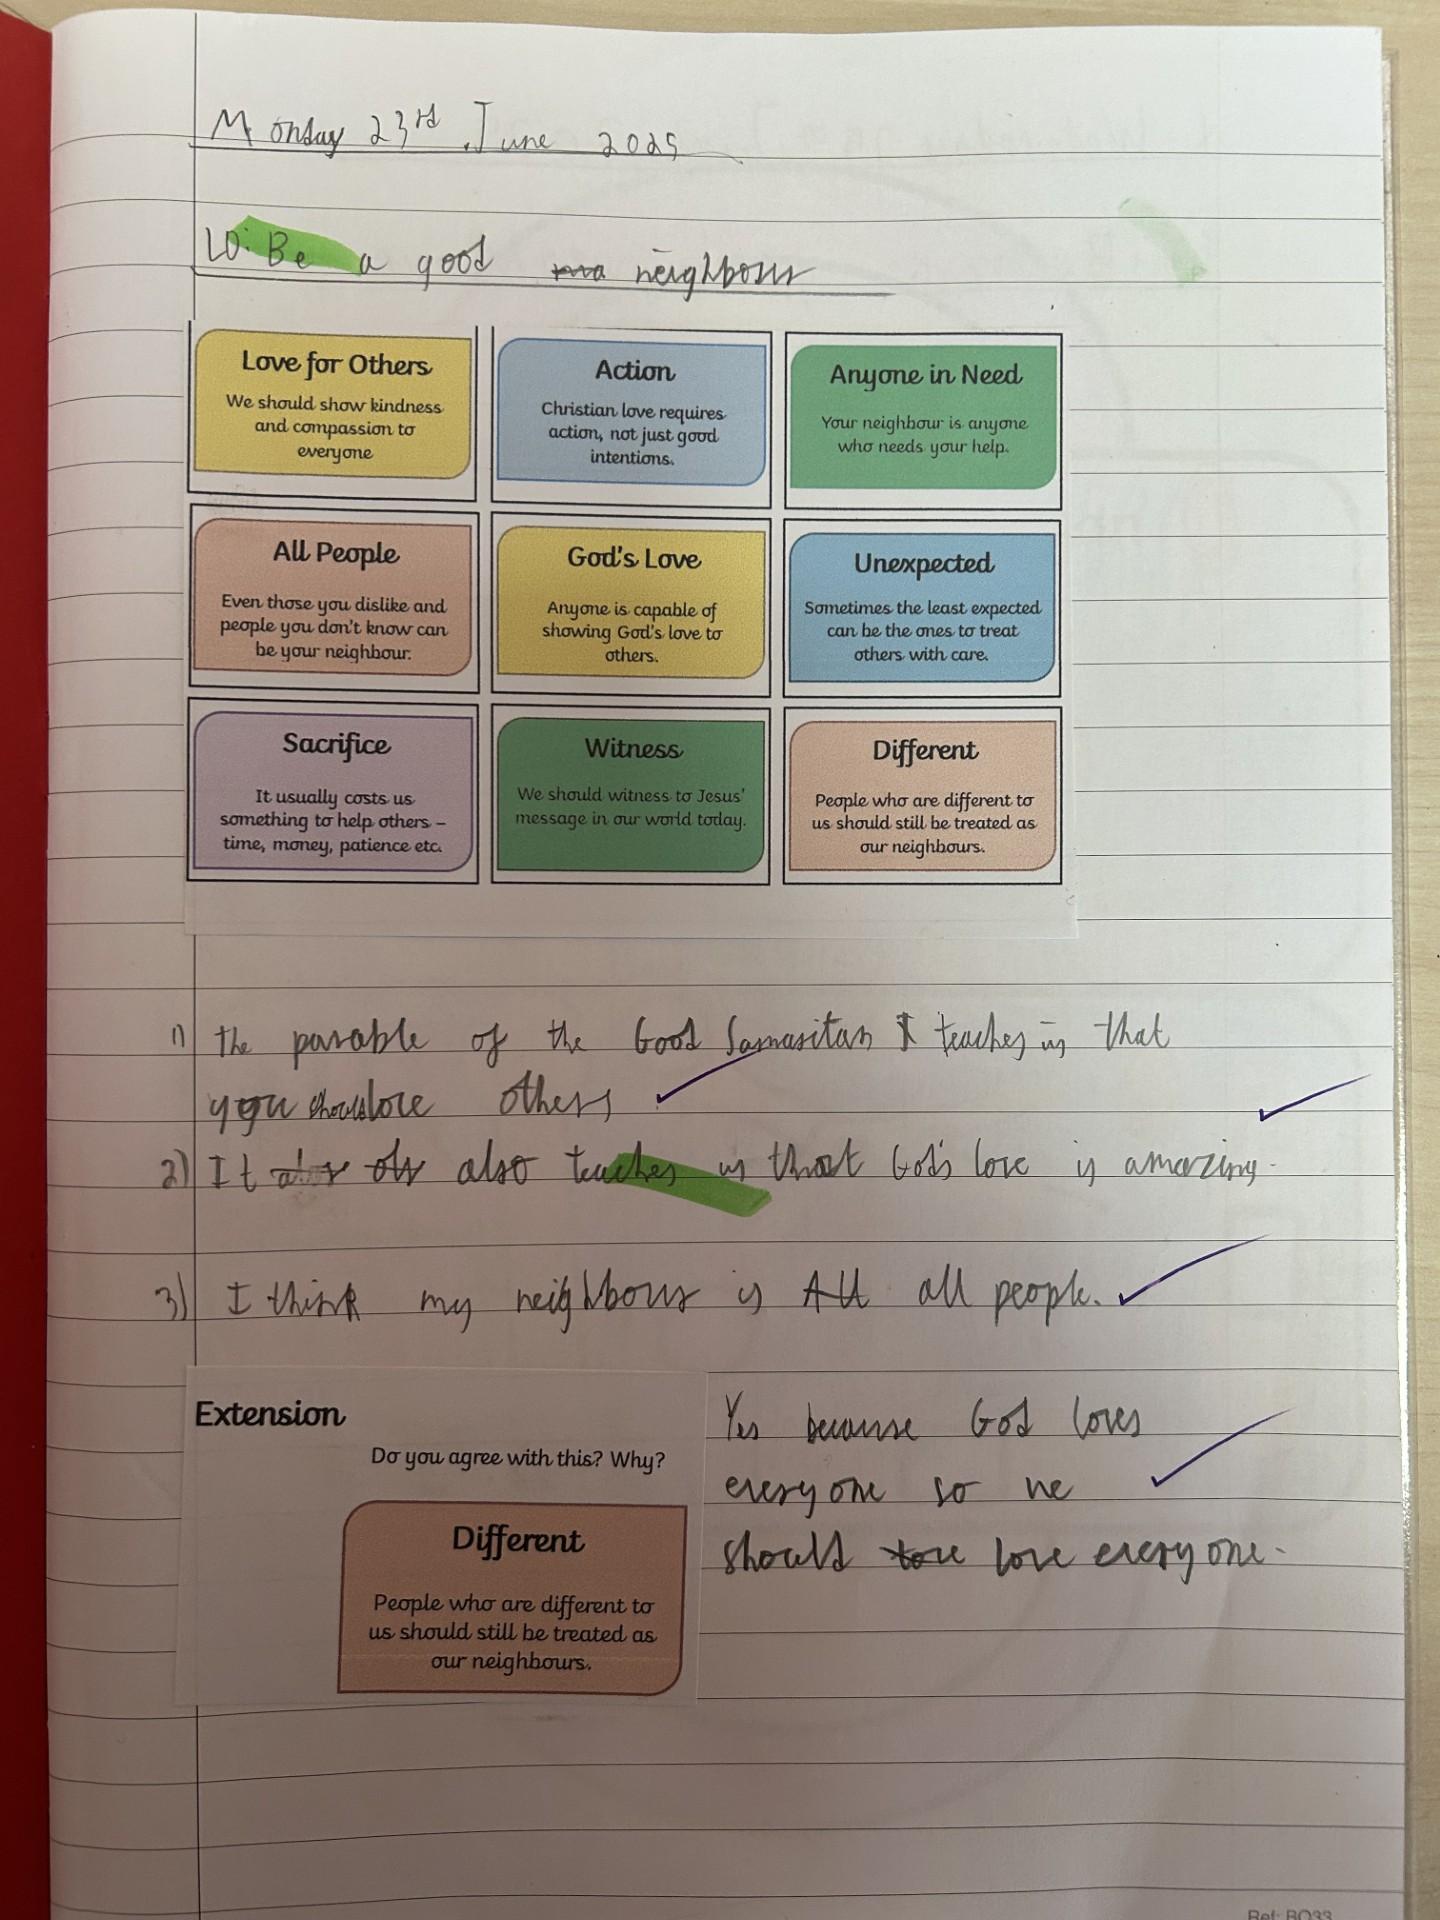 Monday 23rd June 2025
LO: Be a good neighbour
Love for Others
We should show kindness
and compassion to
everyone
Action
Christian love requires
action, not just good
intentions.
Anyone in Need
Your neighbour is anyone
who needs your help.
All People
Even those you dislike and
people you don't know can
be your neighbour.
God's Love
Anyone is capable of
showing God's love to
others.
Unexpected
Sometimes the least expected
can be the ones to treat
others with care.
Sacrifice
It usually costs us
something to help others –
time, money, patience etc.
Witness
We should witness to Jesus'
message in our world today.
Different
People who are different to
us should still be treated as
our neighbours.
1) the parable of the Good Samaritan teaches us that
you should love others
2) It also teaches us that God's love is amazing.
3) I think my neighbour is All all people.
Extension
Do you agree with this? Why?
Different
People who are different to
us should still be treated as
our neighbours.
Yes because God loves
everyone so we
should love everyone.
Ref: BO33